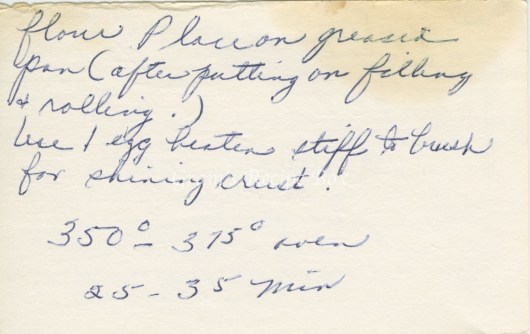 flour Place on greased
pan (after putting on filling
& rolling.)
Use 1 egg beaten stiff to brush
for shining crust.
350° - 375° oven
25 - 35 min